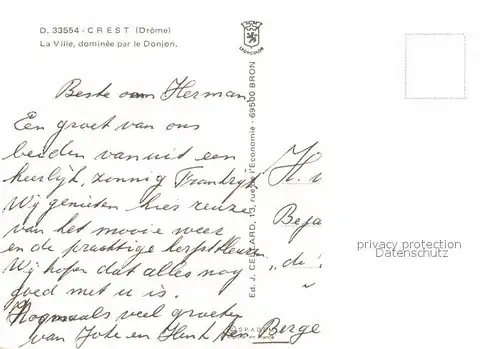 D. 33554 - CREST (Drôme)
La Ville, dominée par le Donjon.
Beste oom Herman
Een groet van ons
beiden vanuit een
heerlijk, zonnig Frankrijk
Wij genieten hier reuze
van het mooie weer
en de prachtige herfstkleuren
Wij hopen dat alles nog
goed met u is.
Nogmaals veel groeten
van Joke en Henk ten Berge
Ed. J. CELLARD, 13, rue de l'Economie - 69500 BRON
H.
Beja
privacy protection
Datenschutz
"de